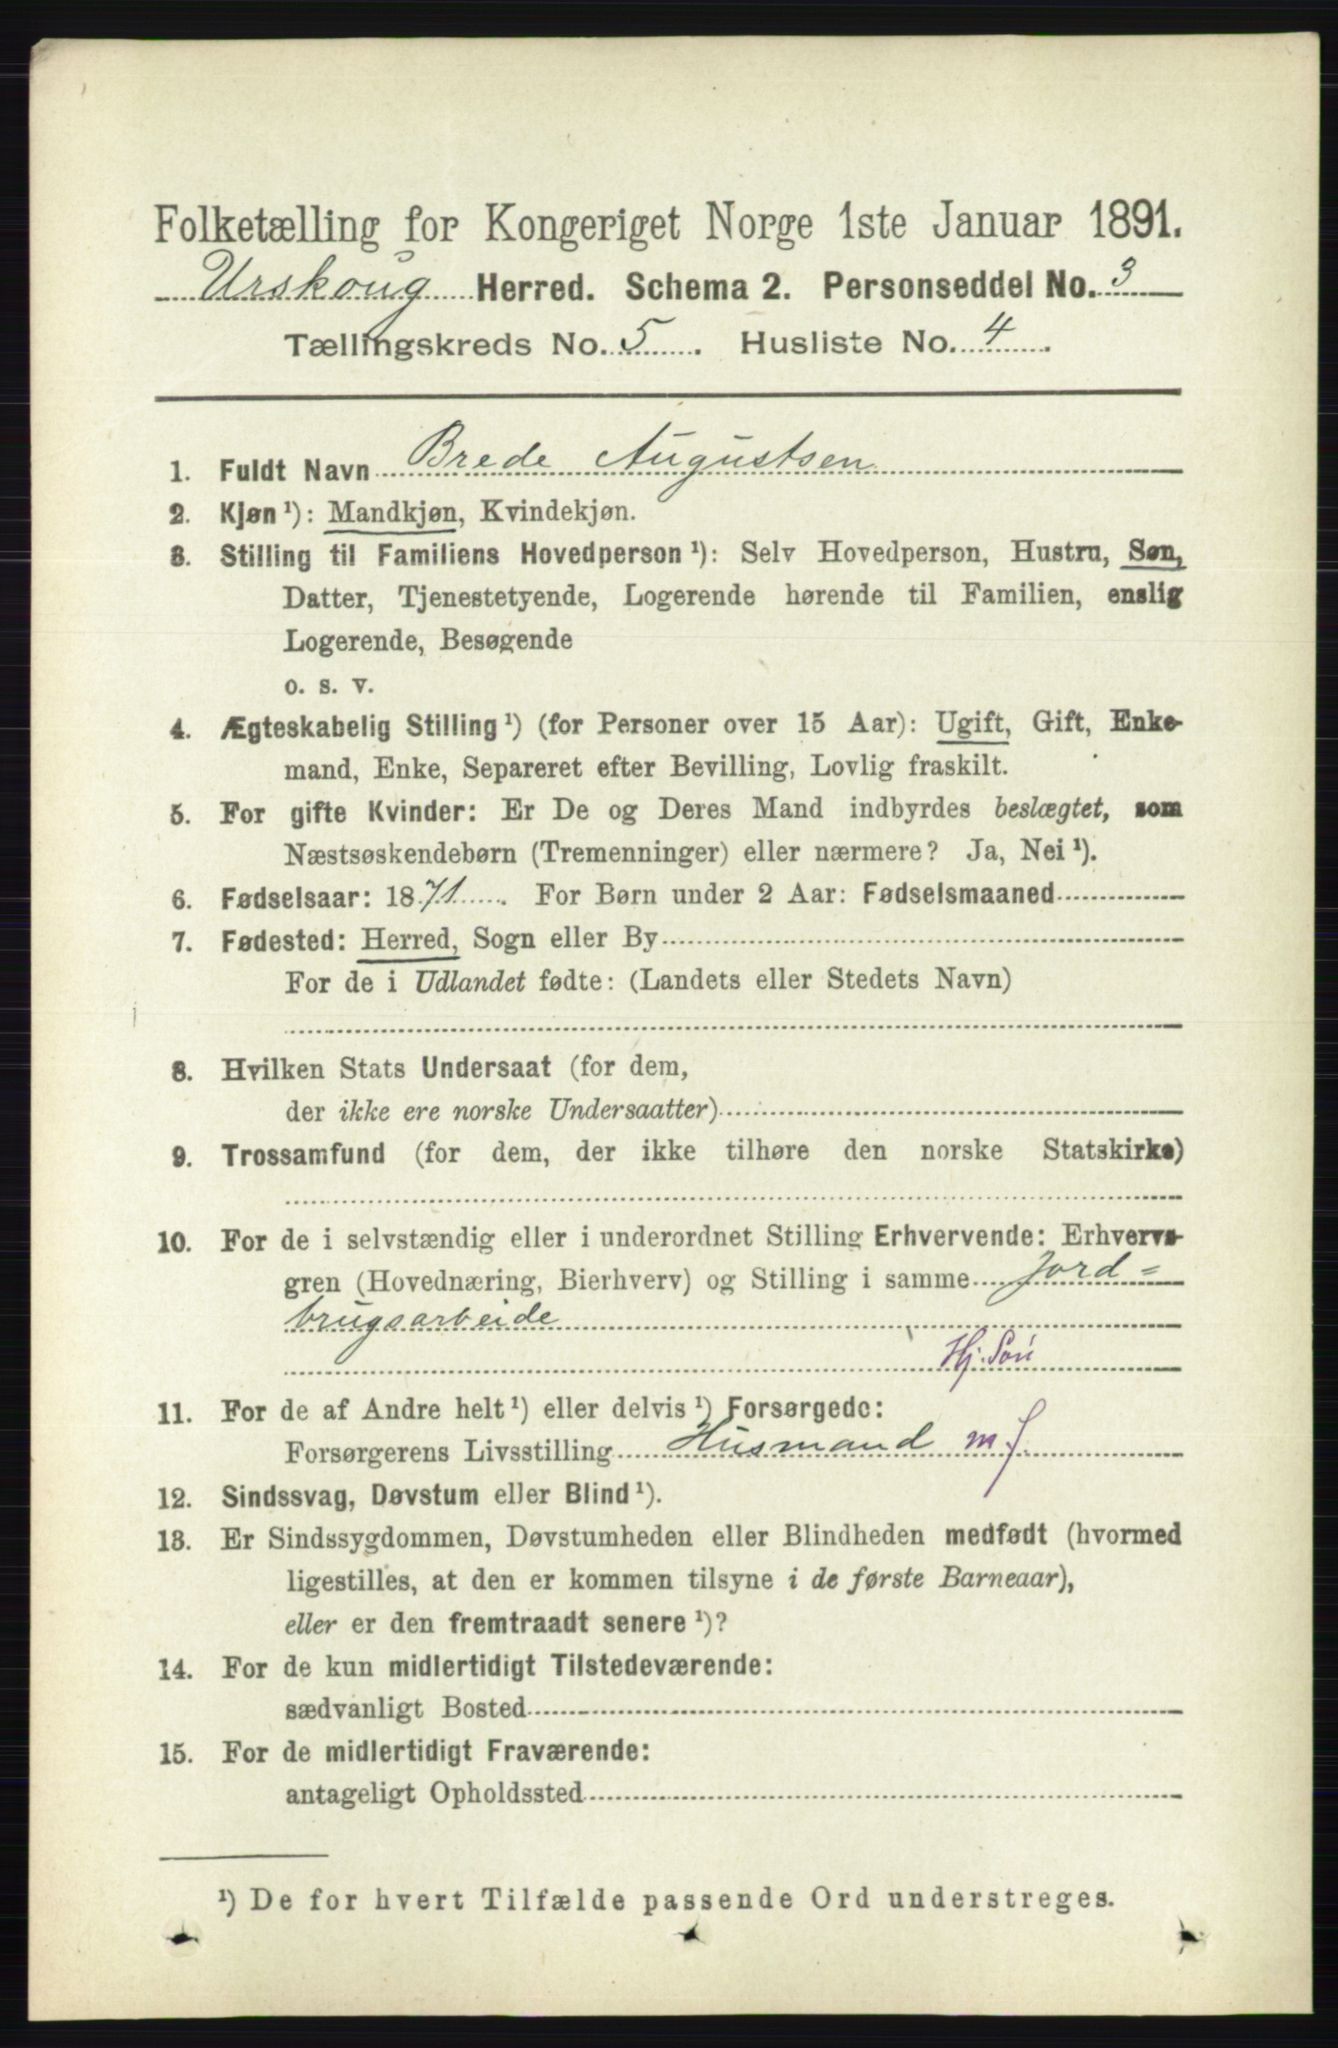 Folketælling for Kongeriget Norge 1ste Januar 1891.
Urskoug Herred. Schema 2. Personseddel No. 3
Tællingskreds No. 5. Husliste No. 4.
1. Fuldt Navn Brede Augustsen
2. Kjøn ¹): Mandkjøn, Kvindekjøn.
3. Stilling til Familiens Hovedperson ¹): Selv Hovedperson, Hustru, Søn,
Datter, Tjenestetyende, Logerende hørende til Familien, enslig
Logerende, Besøgende
o. s. v.
4. Ægteskabelig Stilling ¹) (for Personer over 15 Aar): Ugift, Gift, Enke-
mand, Enke, Separeret efter Bevilling, Lovlig fraskilt.
5. For gifte Kvinder: Er De og Deres Mand indbyrdes beslægtet, som
Næstsøskendebørn (Tremenninger) eller nærmere? Ja, Nei ¹).
6. Fødselsaar: 1871. For Børn under 2 Aar: Fødselsmaaned
7. Fødested: Herred, Sogn eller By
For de i Udlandet fødte: (Landets eller Stedets Navn)
8. Hvilken Stats Undersaat (for dem,
der ikke ere norske Undersaatter)
9. Trossamfund (for dem, der ikke tilhøre den norske Statskirke)
10. For de i selvstændig eller i underordnet Stilling Erhvervende: Erhvervs-
gren (Hovednæring, Bierhverv) og Stilling i samme Jord=
brugsarbeide
Hj. Søn
11. For de af Andre helt ¹) eller delvis ¹) Forsørgede:
Forsørgerens Livsstilling Husmand m J.
12. Sindssvag, Døvstum eller Blind ¹).
13. Er Sindssygdommen, Døvstumheden eller Blindheden medfødt (hvormed
ligestilles, at den er kommen tilsyne i de første Barneaar),
eller er den fremtraadt senere ¹)?
14. For de kun midlertidigt Tilstedeværende:
sædvanligt Bosted
15. For de midlertidigt Fraværende:
antageligt Opholdssted
¹) De for hvert Tilfælde passende Ord understreges.